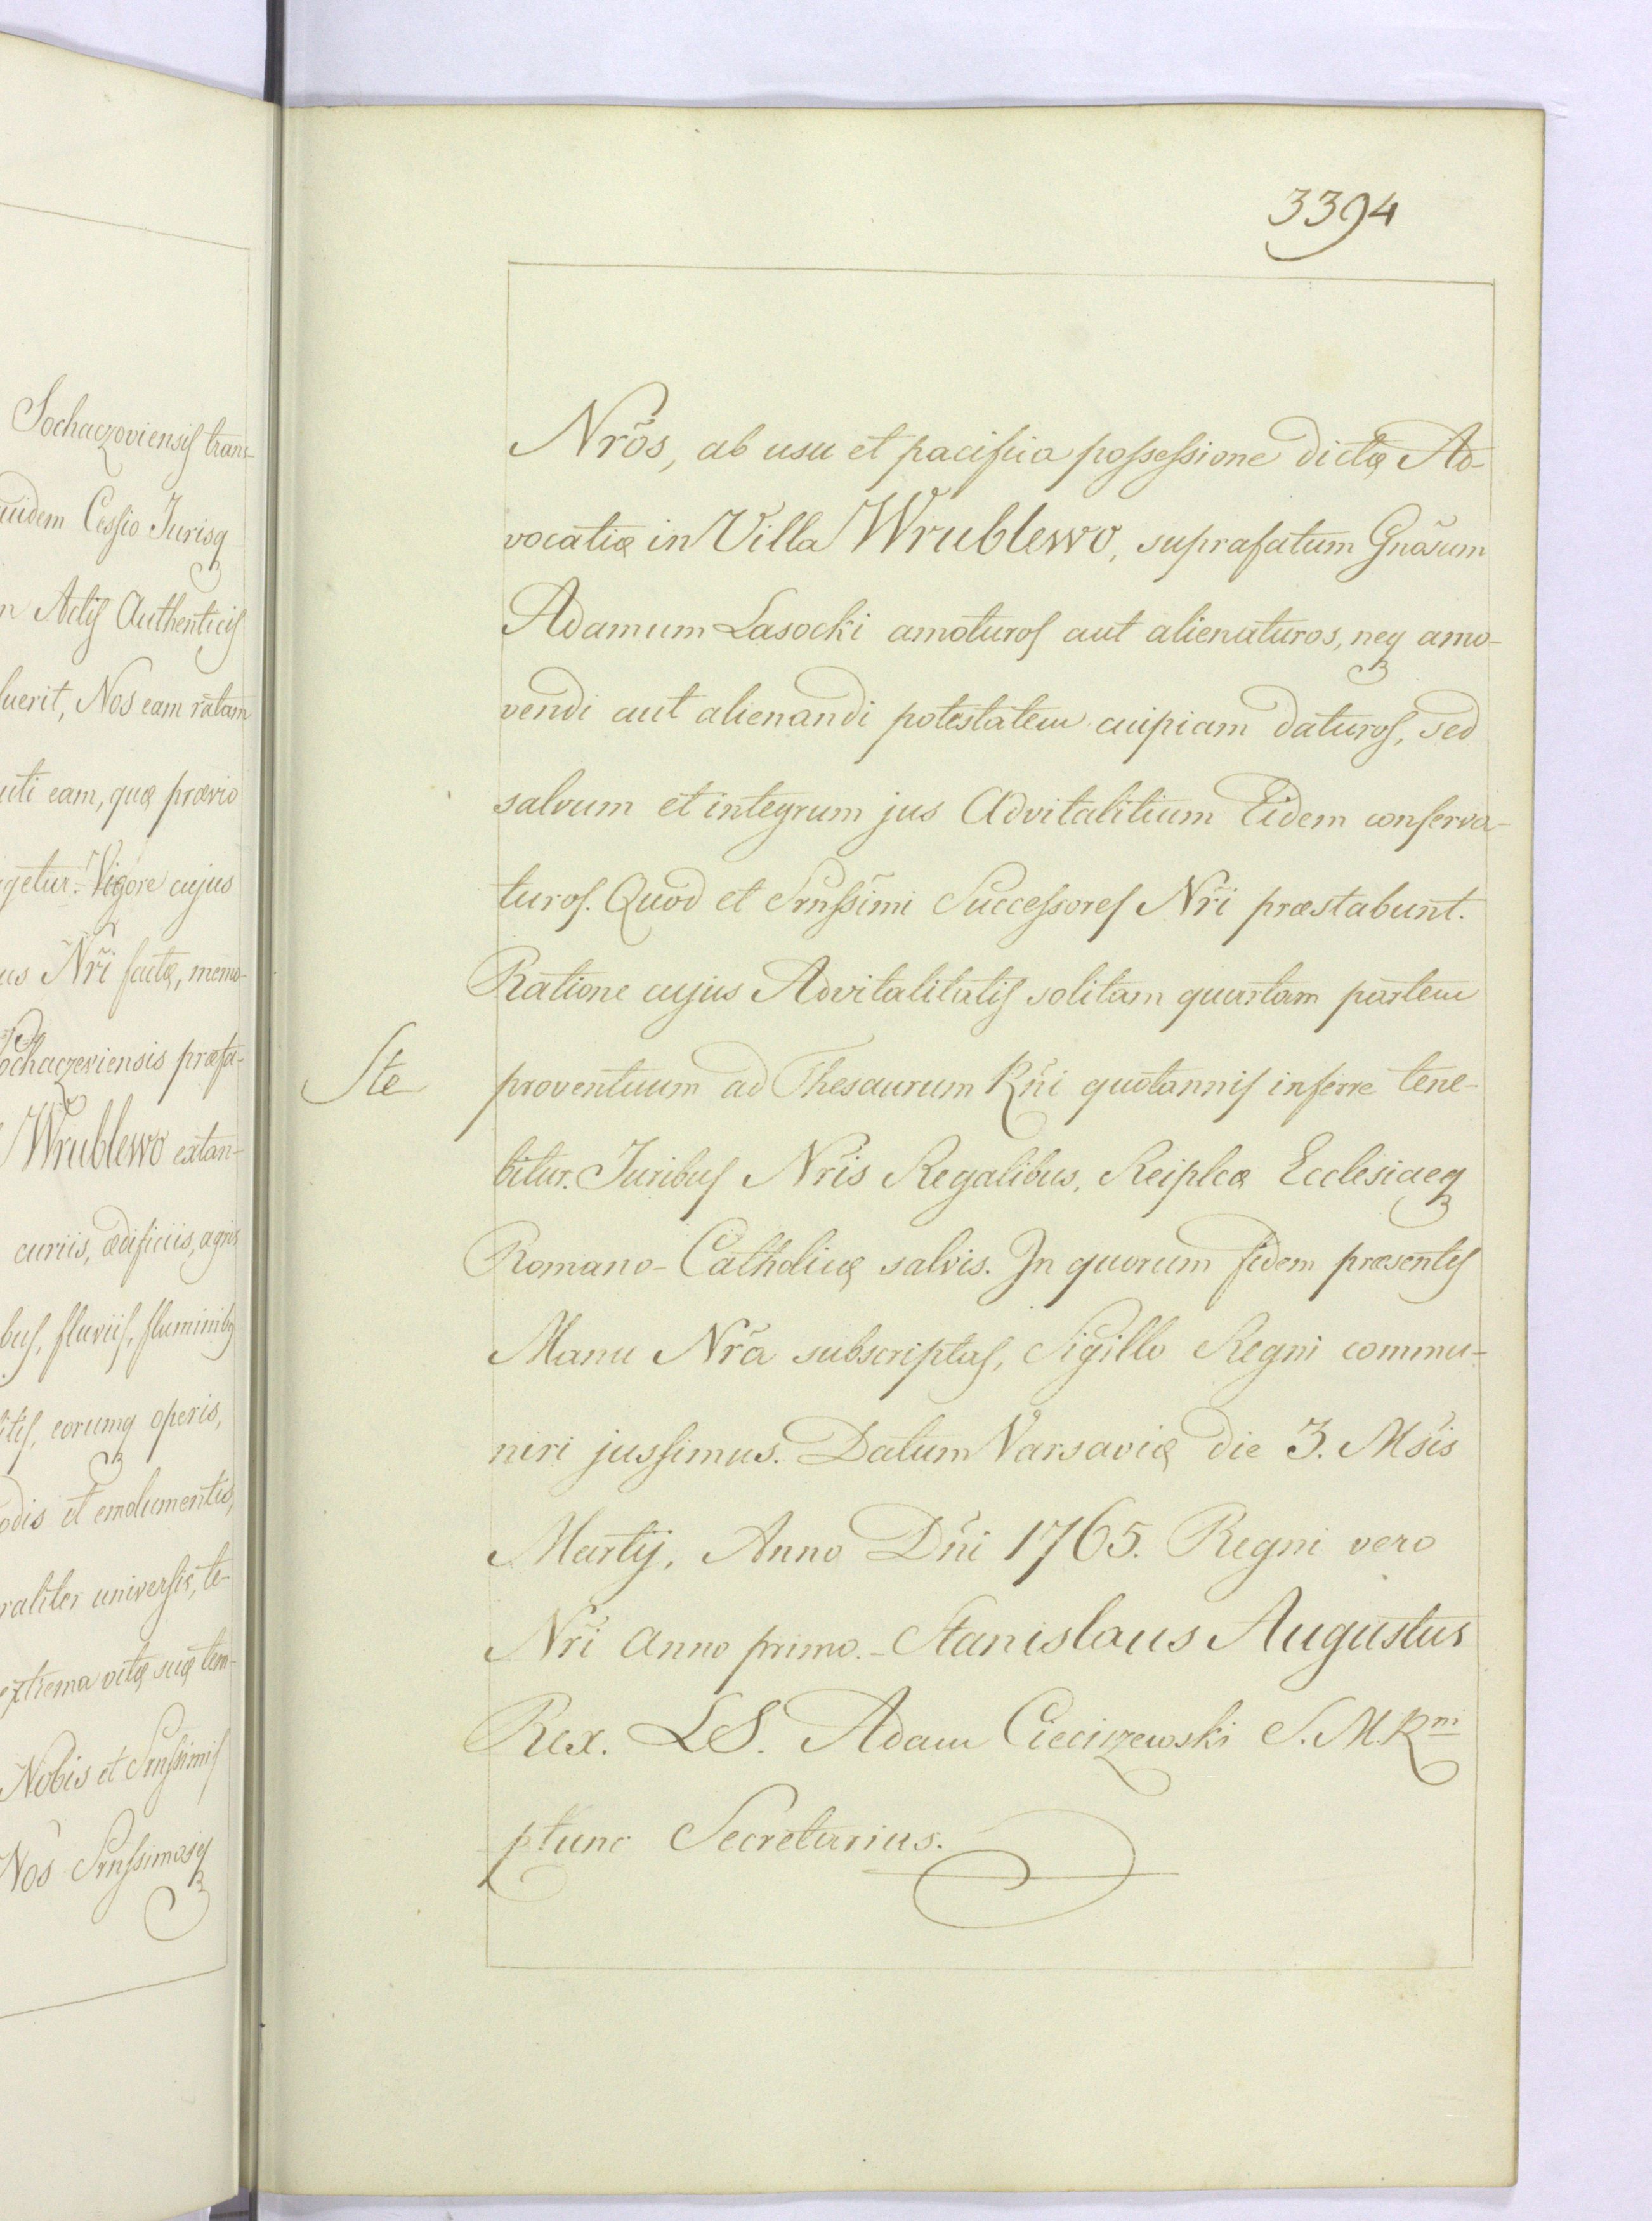 Sochaczoviensis trans-
uidem Cessio Jurisq
n Actis Authenticis
luerit, Nos eam ratam
uti eam, quæ prævio
getur. Vigore cujus
us Nr̃i factæ, memo-
ochaczeviensis præfa-
Wrublewo extan-
curiis, ædificiis, agris
bus, fluviis, fluminibq
itis, eorumq operis,
odis et emolumentis,
raliter universis, te-
extrema vitæ suæ tem-
Nobis et Srnssimis
Nos Srnssimosq
3394
Nr̃os, ab usu et pacifica possessione dictæ Ad-
vocatiæ in Villa Wrublewo, suprafatum Gnõsum
Adamum Lasocki amoturos aut alienaturos, neq amo-
vendi aut alienandi potestatem cuipiam daturos, sed
salvum et integrum jus Advitalitium Eidem conserva-
turos. Quod et Srnssimi Successores Nr̃i præstabunt.
Ratione cujus Advitalitatis solitam quartam partem
Ste
proventuum ad Thesaurum Rñi quotannis inferre tene-
bitur. Juribus Nr̃is Regalibus, Reiplcæ Ecclesiaeq
Romano-Catholicæ salvis. In quorum fidem præsentes
Manu Nr̃a subscriptas, Sigillo Regni commu-
niri jussimus. Datum Varsaviæ die 3. Msis
Martij, Anno Dñi 1765. Regni vero
Nr̃i anno primo. - Stanislaus Augustus
Rex. LS. Adam Cieciszewski S. M. Rni
ptunc Secretarius.